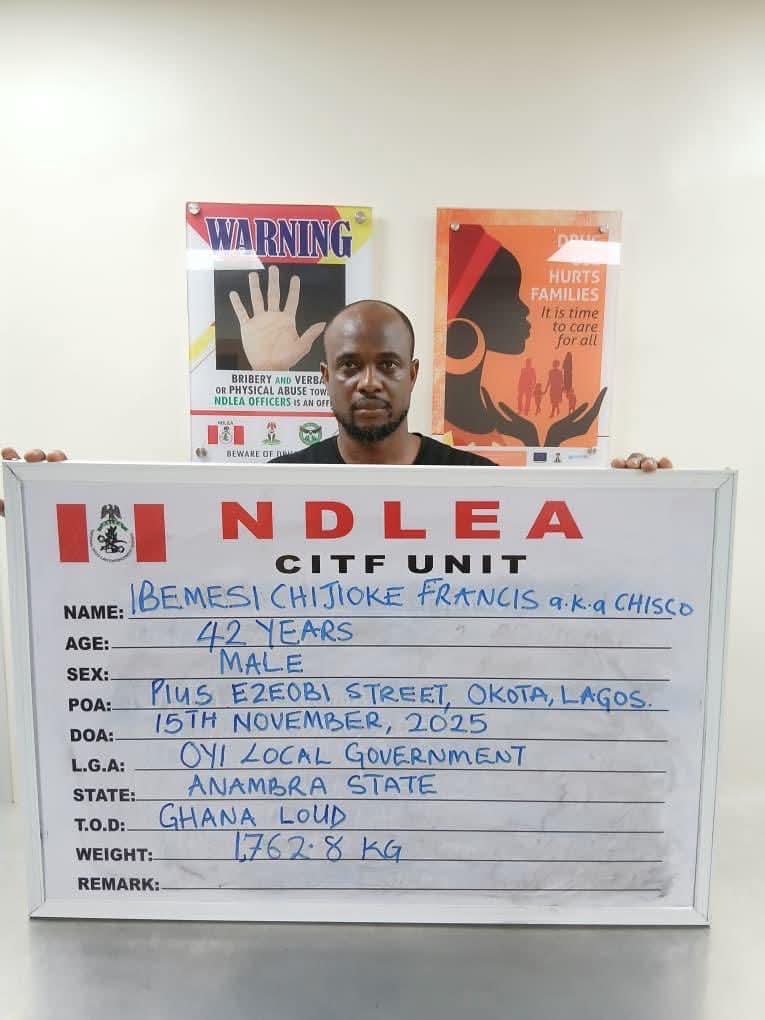 WARNING
BRIBERY AND VERBA
OR PHYSICAL ABUSE TOWA
NDLEA OFFICERS IS AN OFF
NDLEA
BEWARE OF DR
DRUG
HURTS
FAMILIES
It is time
to care
for all
NDLEA
CITF UNIT
NAME: IBEMESI CHIJIOKE FRANCIS a.k.a CHISCO
AGE: 42 YEARS
SEX: MALE
POA: PIUS EZEOBI STREET, OKOTA, LAGOS.
DOA: 15TH NOVEMBER, 2025
L.G.A: OYI LOCAL GOVERNMENT
STATE: ANAMBRA STATE
T.O.D: GHANA LOUD
WEIGHT: 1,762.8 KG
REMARK: